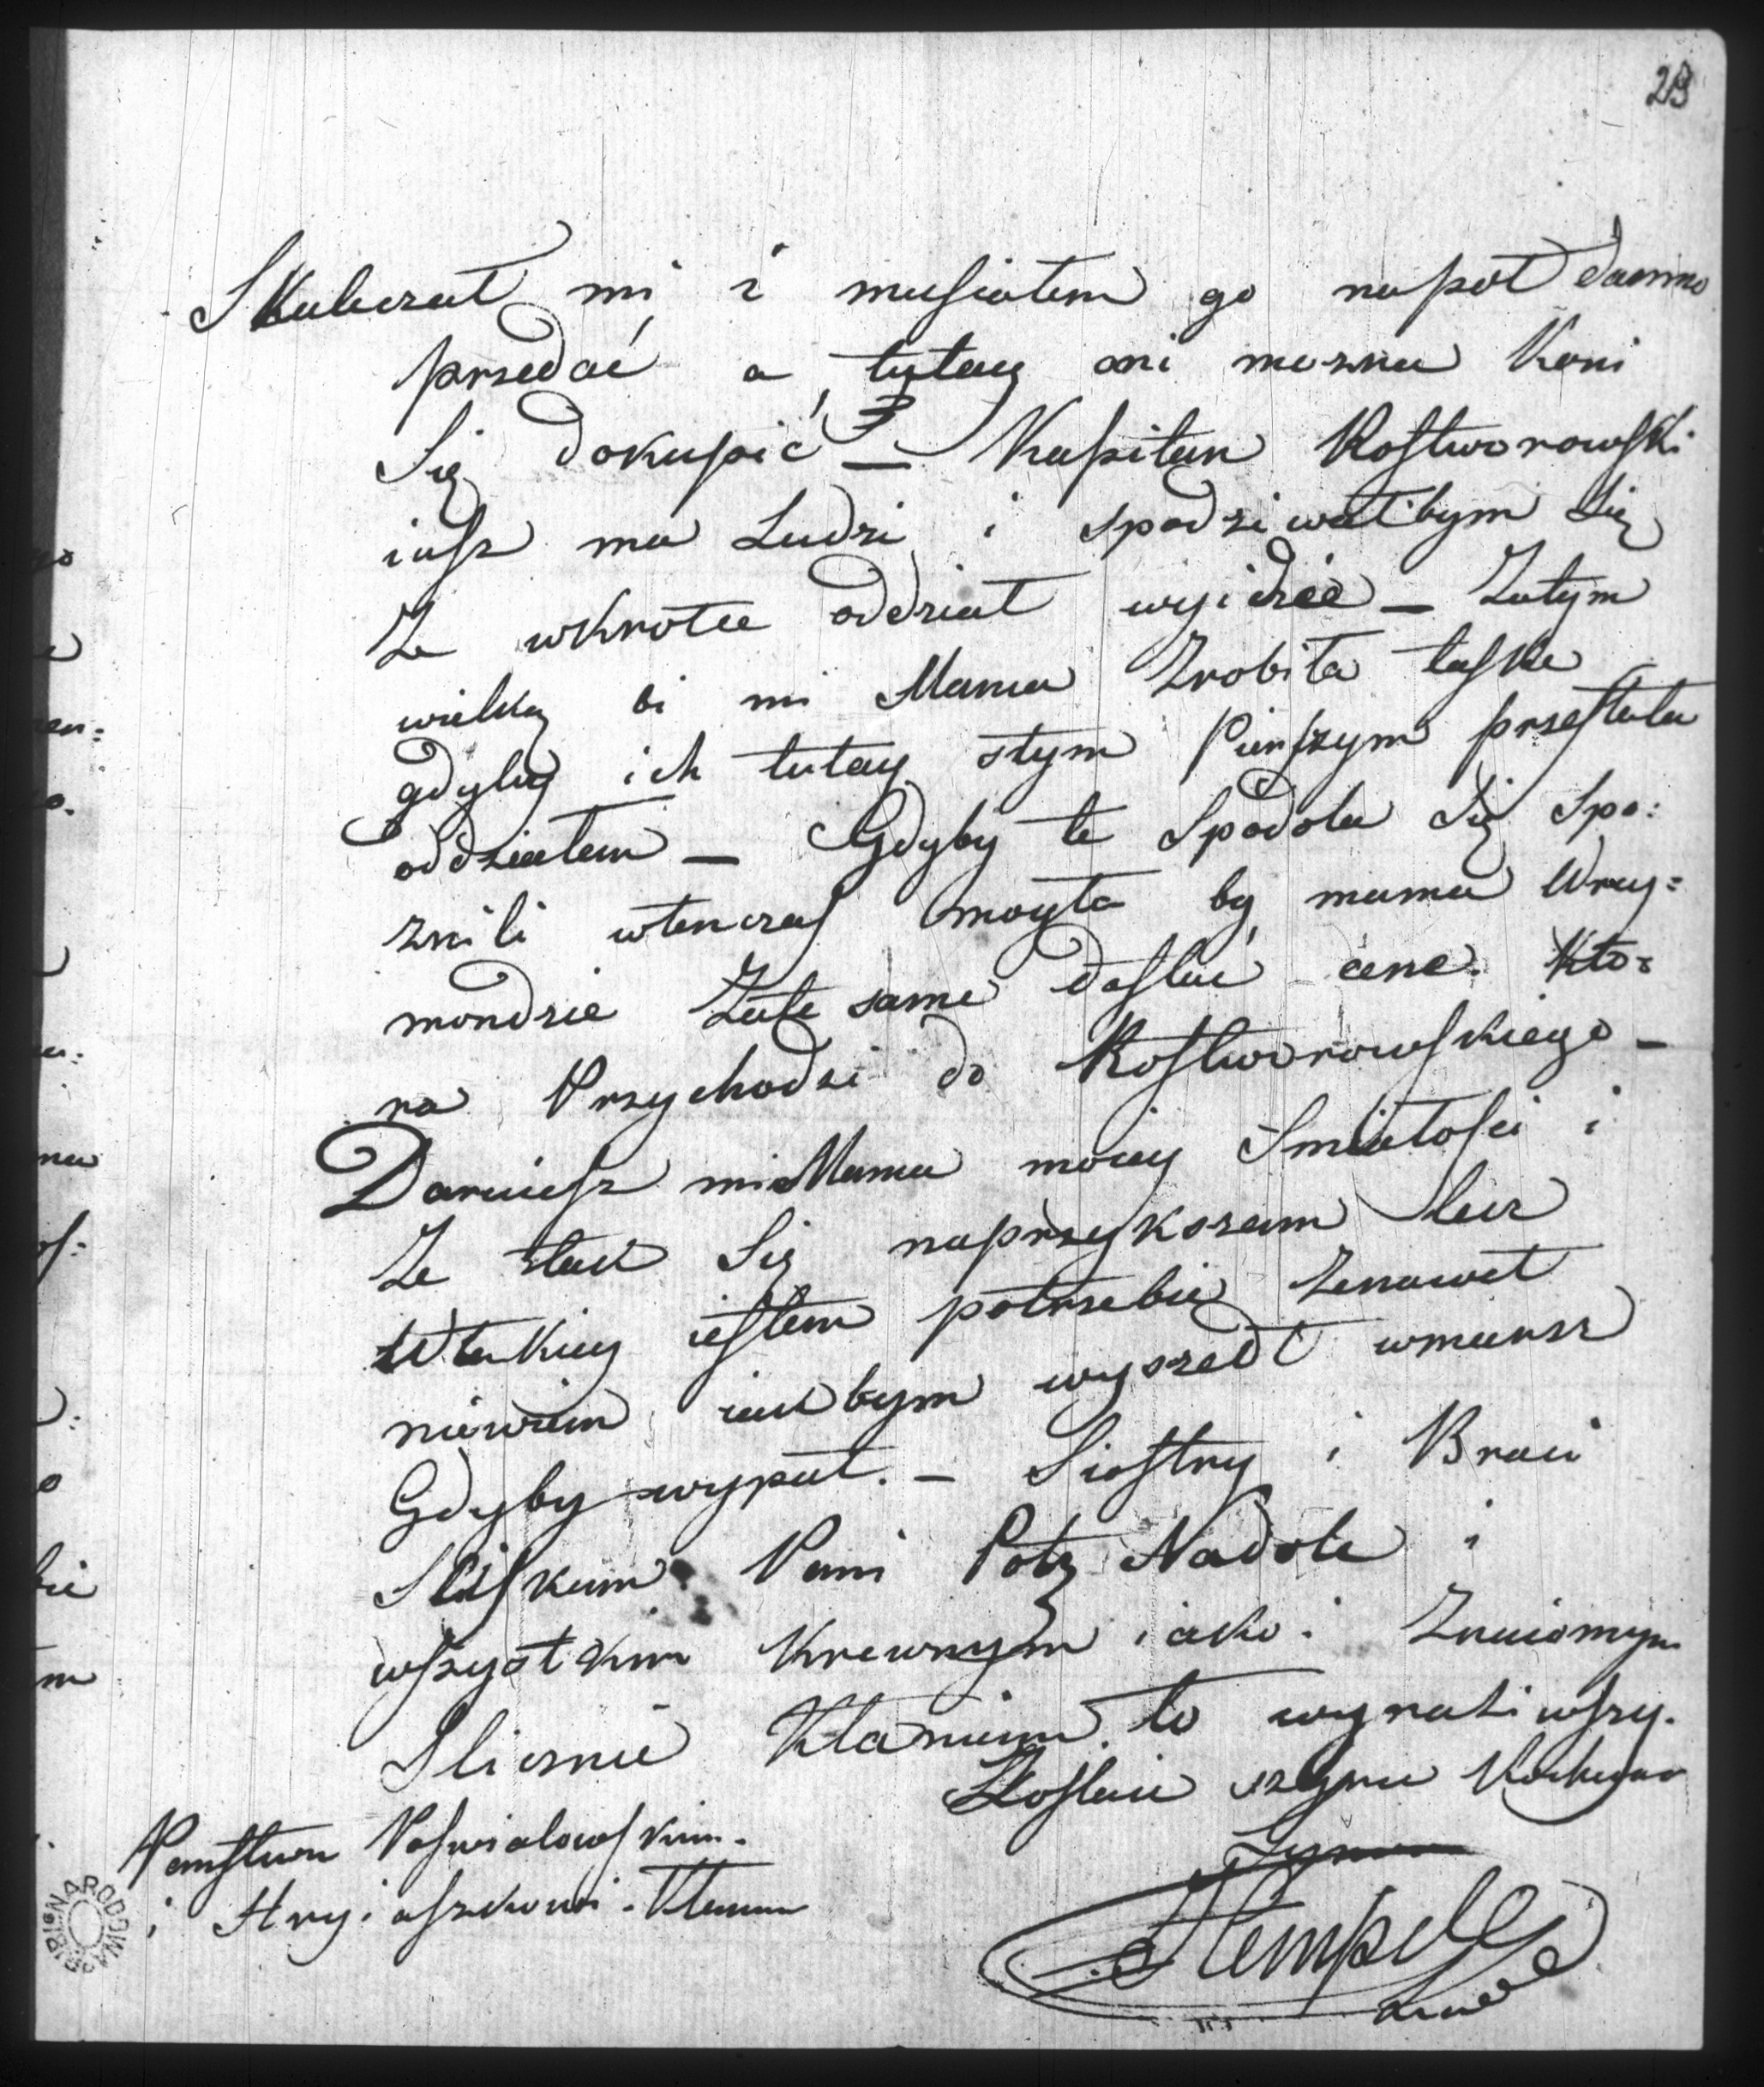 29
Skulczał mi i musiałem go napoł darmo
przedać a tutay ani mozna koni
Się dokupić — Kapitan Rostworowski
iusz ma Ludzi i spodziwałbym Się
Ze wkrotce oddział wyidzie — Zatym
wielką bi mi Mama Zrobiła łaske
gdyby ich tutay stym Pierszym przesłała
oddziałem — Gdyby te Spodola Się Spo:
znili wtenczas mogła by mama
mondzie Zate same dosłać cene. Kto=
ra Przychodzi do Rostworowskiego —
Daruiesz mi Mama moiey Smiałosci i
Ze tak Się naprzykszam lecz
Wtakiey iestem potrzebie Zenawet
niewiem iakbym wyszedł wmarsz
Gdyby wypał. — Siostry i Braci
Sciskam Pani Nadole i
wszystkim Krewnym iako i Znaiomym
Slicznie Kłaniam to wyrazi wszy.
Zostaie
Panstwu
i
Hempel
BIBL. NARODOWA